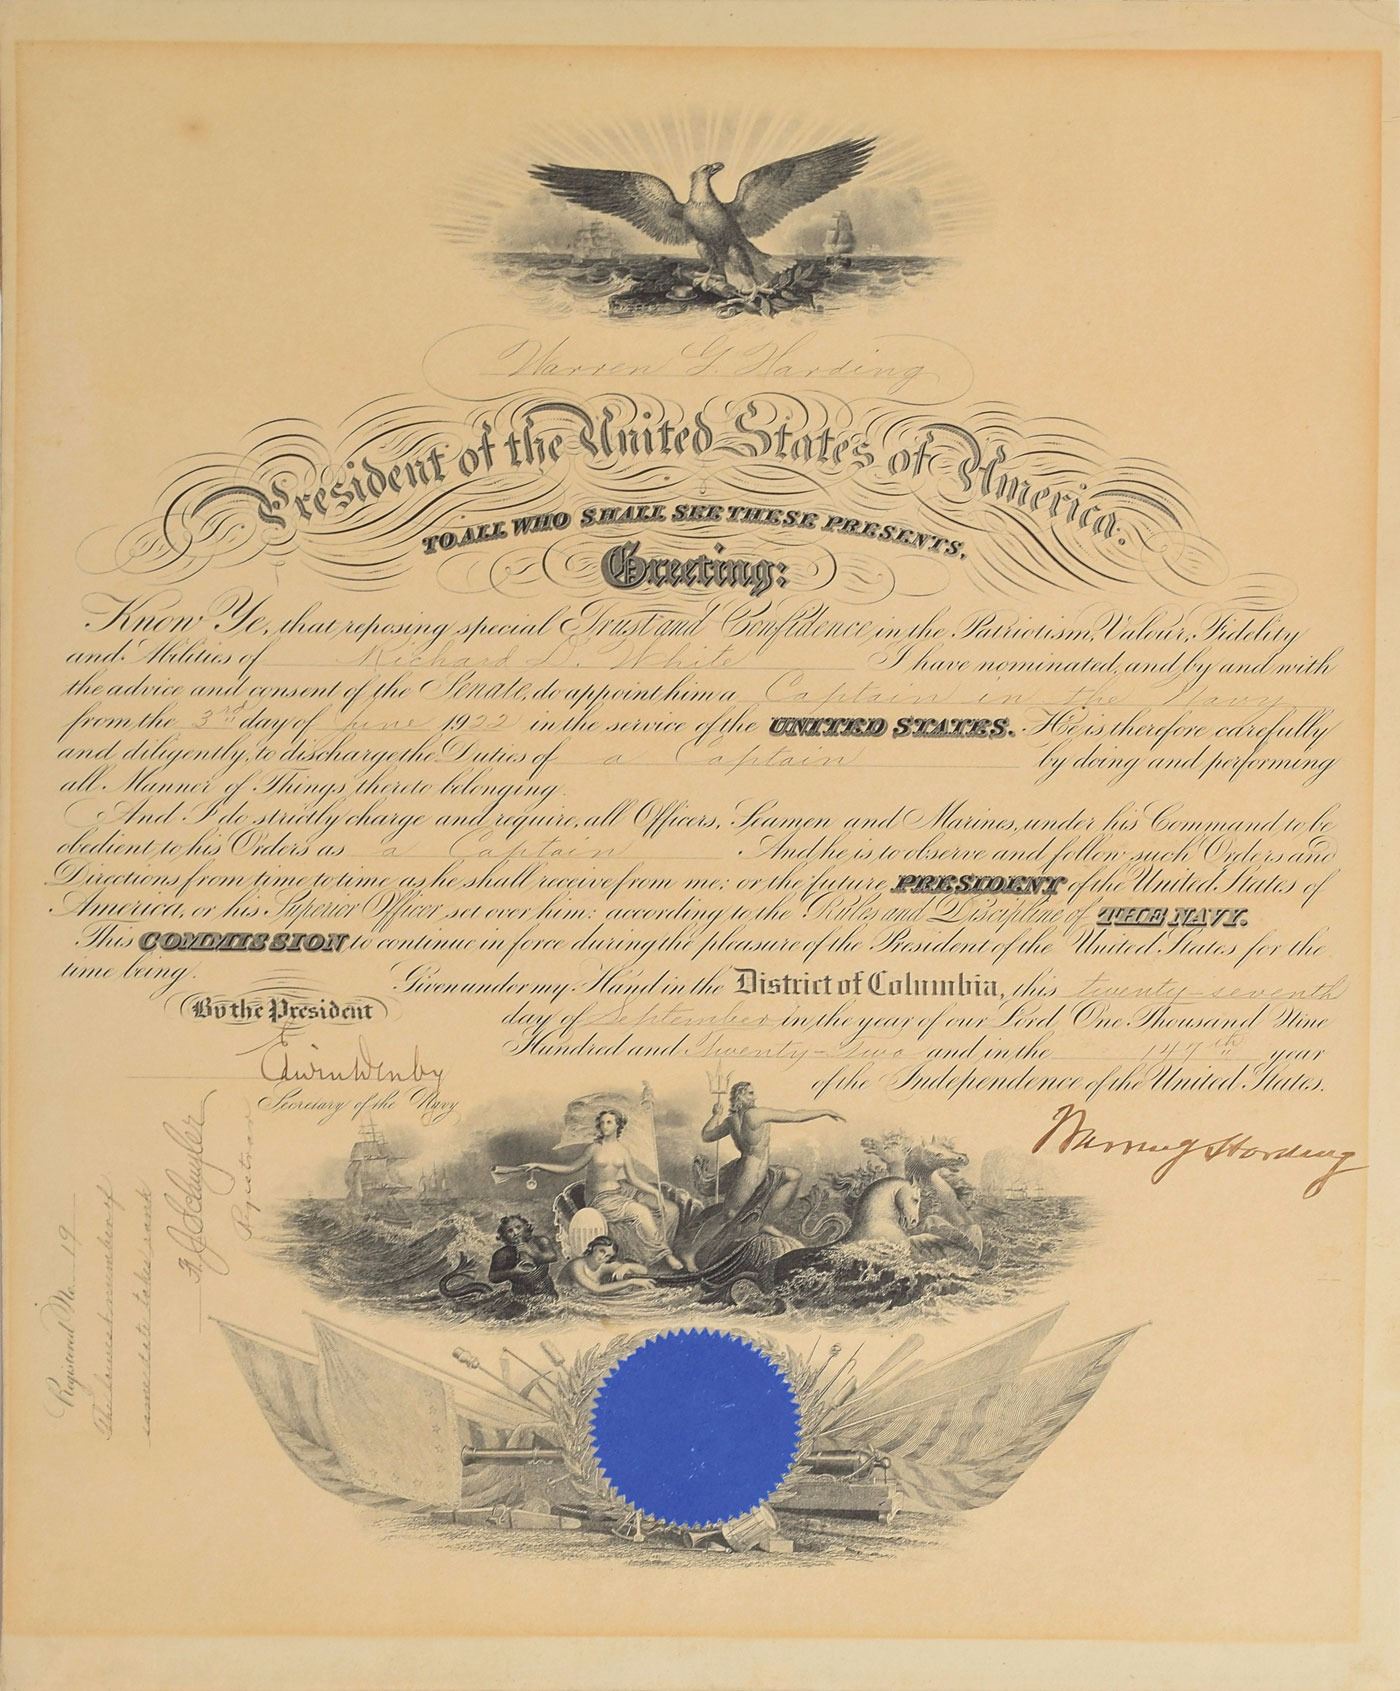 Warren G. Harding
President of the United States of America.
TO ALL WHO SHALL SEE THESE PRESENTS,
Greeting:
Know Ye, that reposing special Trust and Confidence in the Patriotism, Valour, Fidelity
and Abilities of Richard D. White I have nominated, and by and with
the advice and consent of the Senate, do appoint him a Captain in the Navy
from the 3rd day of June 1922 in the service of the UNITED STATES. He is therefore carefully
and diligently, to discharge the Duties of a Captain by doing and performing
all Manner of Things thereto belonging.
And I do strictly charge and require, all Officers, Seamen and Marines, under his Command to be
obedient to his Orders as a Captain And he is to observe and follow such Orders and
Directions from time to time as he shall receive from me: or the future PRESIDENT of the United States of
America, or his Superior Officer set over him: according to the Rules and Discipline of THE NAVY.
This COMMISSION to continue in force during the pleasure of the President of the United States for the
time being.
Given under my Hand in the District of Columbia, this twenty-seventh
day of September in the year of our Lord One Thousand Nine
Hundred and Twenty-Two and in the 147th year
of the Independence of the United States.
By the President
Edwin Denby
Secretary of the Navy
Warren G Harding
Registered No. 19
The lowest number of
same date takes rank
F. J. Schuyler
Registrar